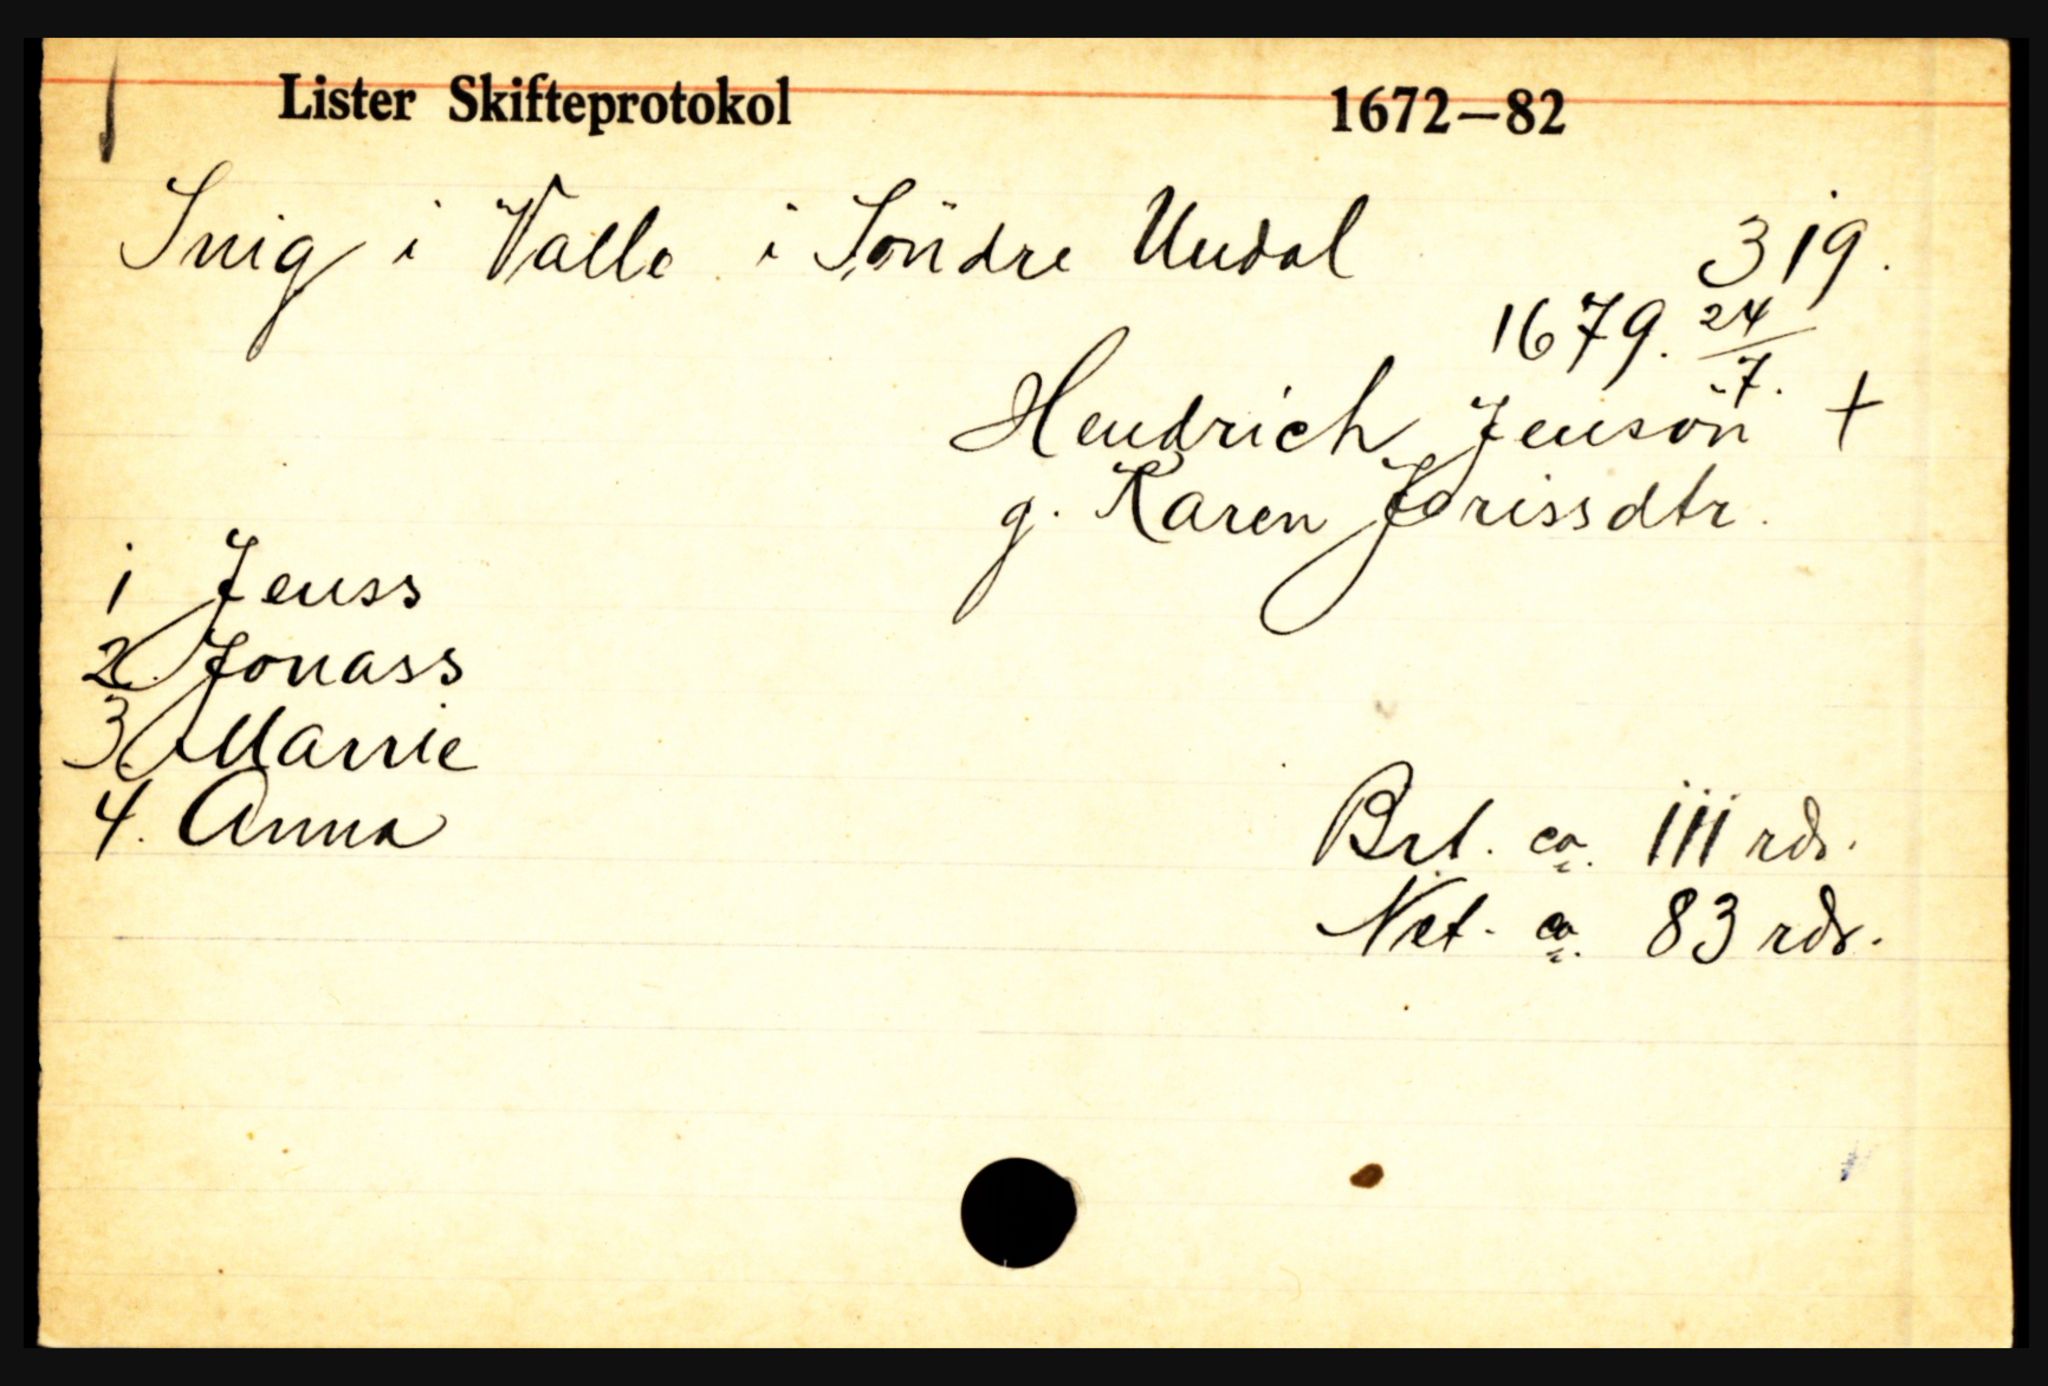 Lister Skifteprotokol 1672—82
Snig i Valle i Söndre Undal 319.
1679. 24/7.
Hendrich Jensön +
g. Karen Jörissdtr.
1 Jenss
2. Jonass
3. Marrie
4. Anna
Brt. ca. 111 rdr.
Net. ca. 83 rdr.